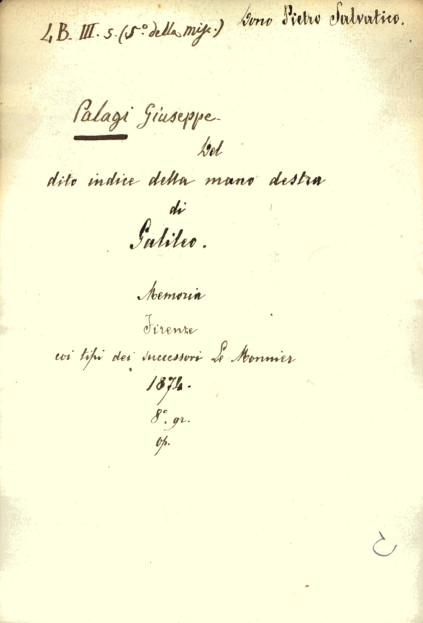 4. B. III. 5. (5° della misc.) Dono Pietro Salvatico.
Palagi Giuseppe.
Del
dito indice della mano destra
di
Galileo.
Memoria
Firenze
coi tipi dei successori Le Monnier
1874.
8° gr.
op.